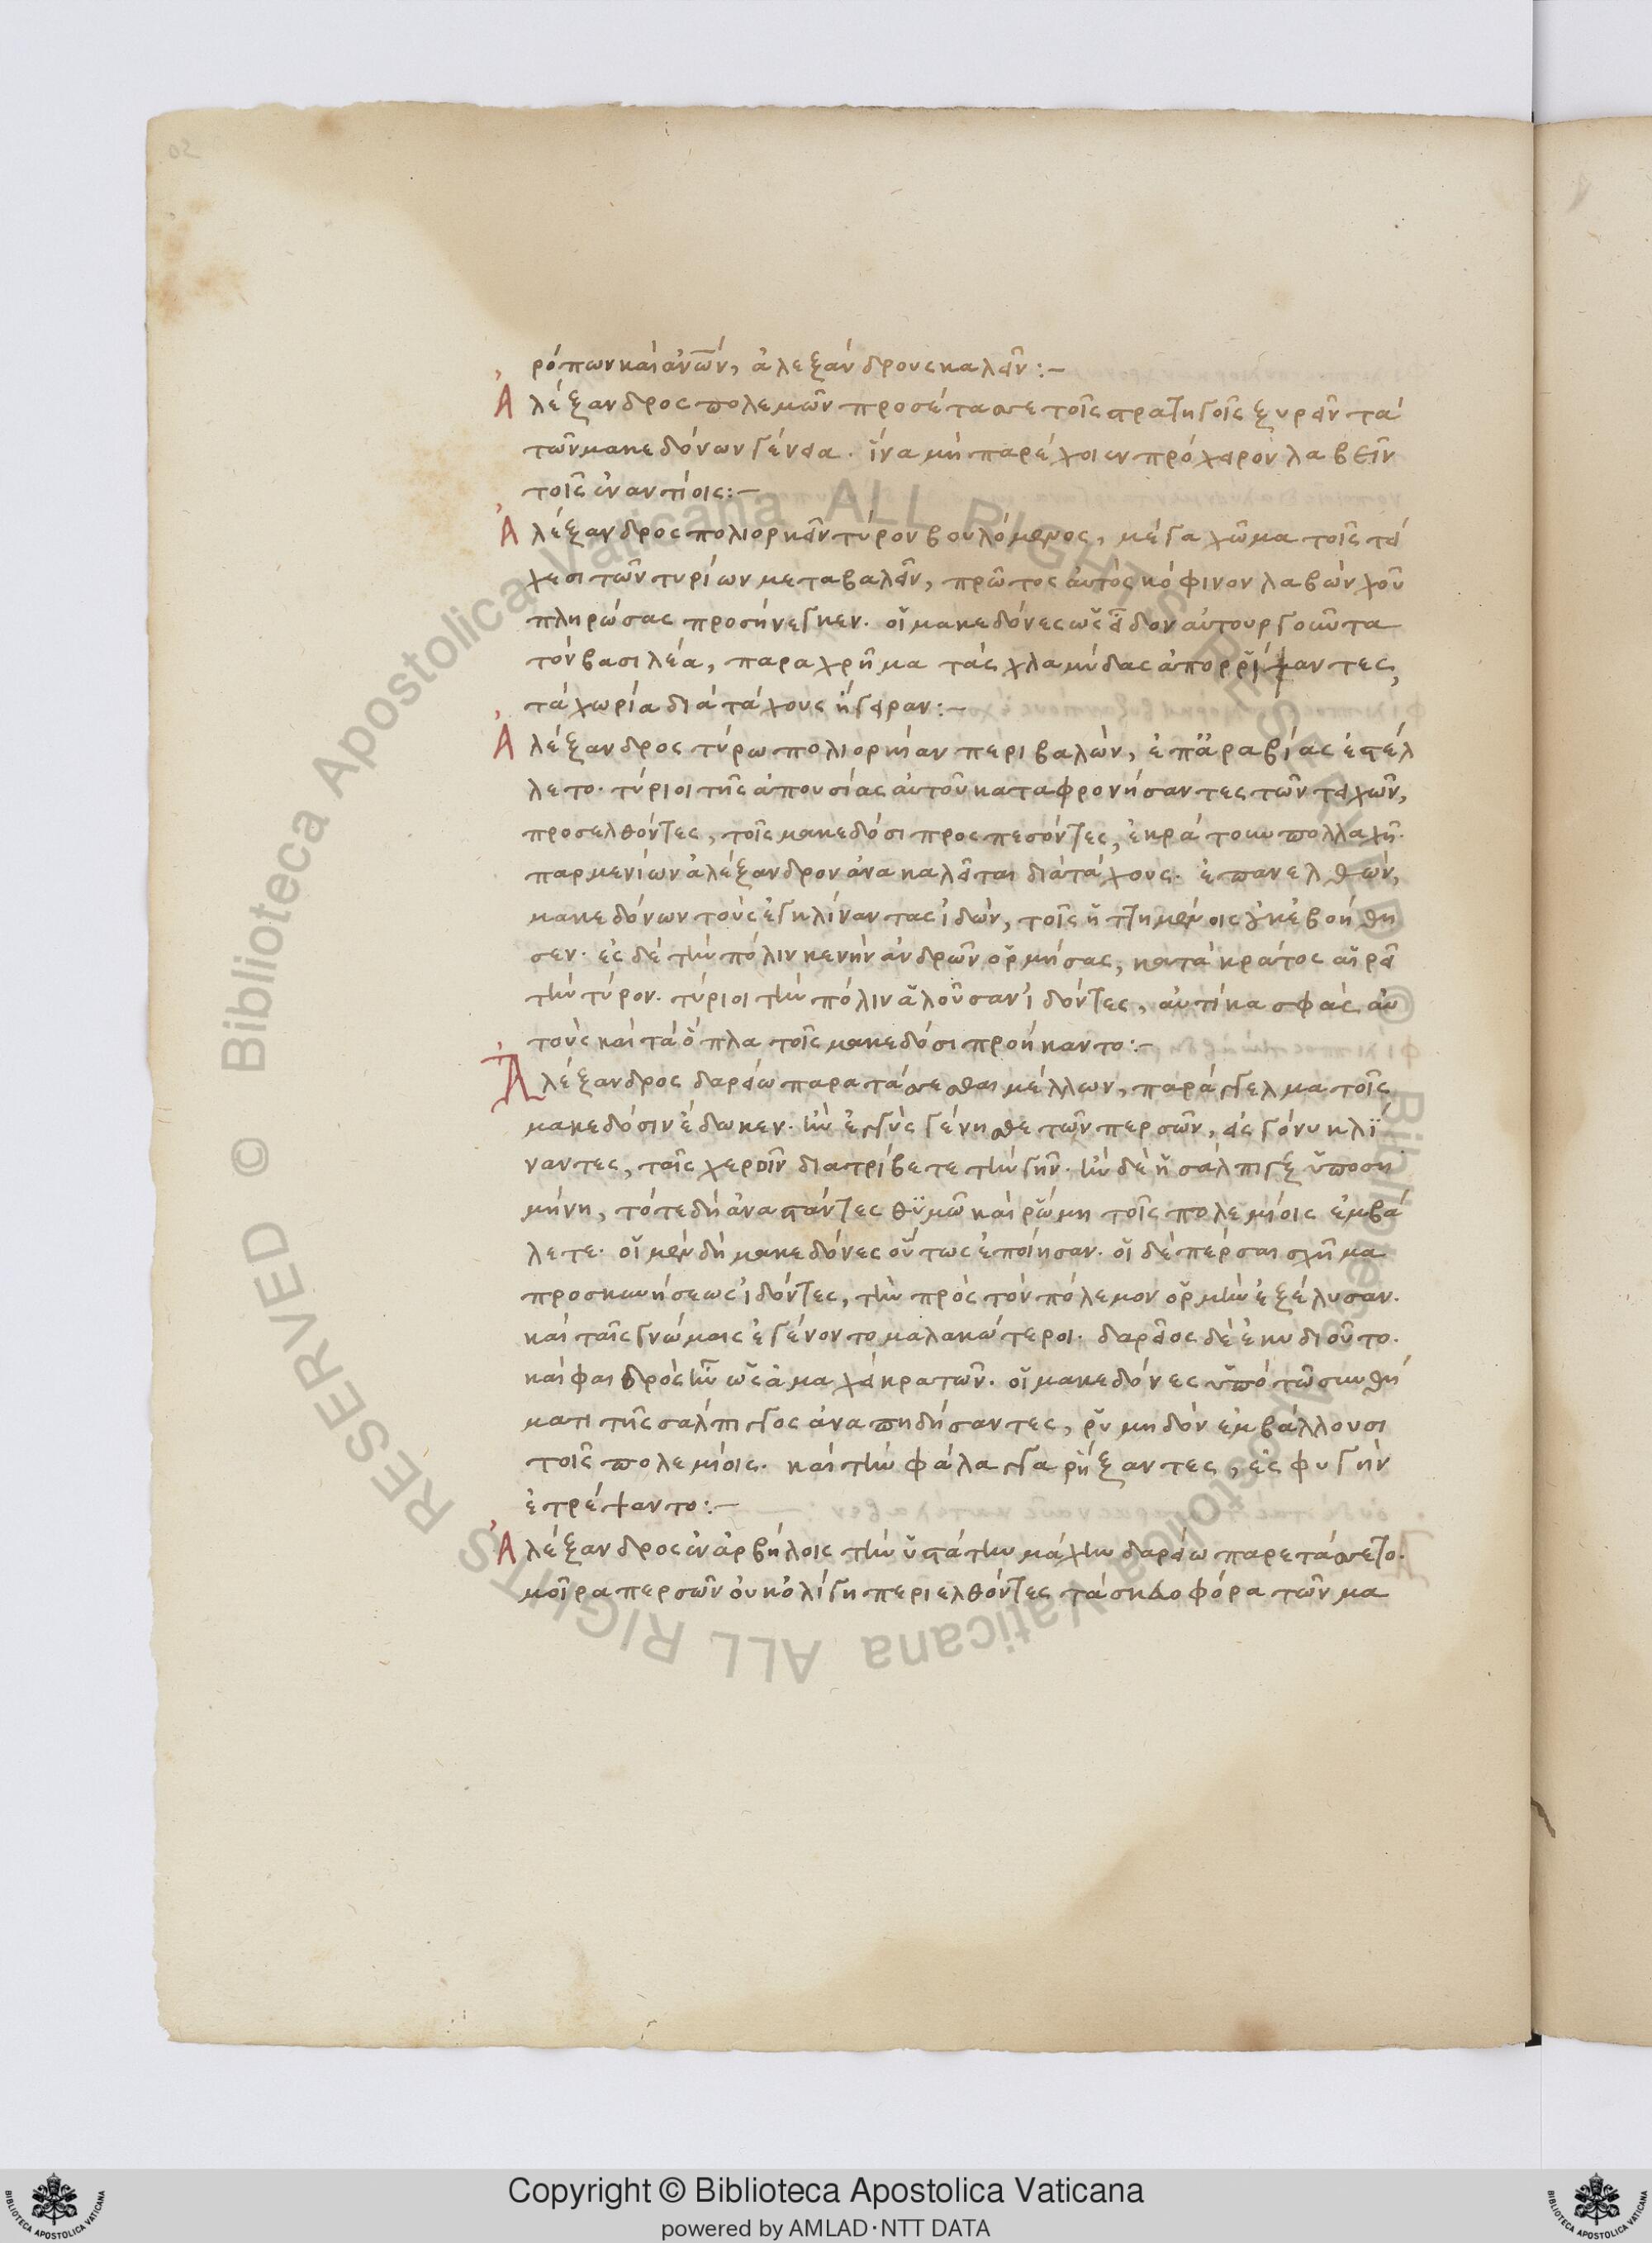 ρόπων καὶ ἀν̅ω̅ν, ἀλεξάνδρους καλεῖν:-
Ἀλέξανδρος πολεμῶν προσέταξε τοῖς στρατηγοῖς ξυρεῖν τὰ
τῶν μακεδόνων γένεια. ἵνα μὴ παρέχοιεν πρόχειρον λαβεῖν
τοῖς ἐναντίοις:-
Ἀλέξανδρος πολιορκεῖν τύρον βουλόμενος, μέγα χῶμα τοῖς τεί
χεσι τῶν τυρίων μεταβαλεῖν, πρῶτος αὐτὸς κόφινον λαβὼν χοῦ
πληρώσας προσήνεγκεν. οἱ μακεδόνες ὡς εἶδον αὐτουργοῦντα
τὸν βασιλέα, παραχρῆμα τὰς χλαμύδας ἀπορρίψαντες,
τὰ χωρία διὰ τάχους ἤγειραν:-
Ἀλέξανδρος τύρω πολιορκίαν περιβαλὼν, ἐπ' ἀραβίας ἐστέλ
λετο. τύριοι τῆς ἀπουσίας αὐτοῦ καταφρονήσαντες τῶν τειχῶν,
προσελθόντες, τοῖς μακεδόσι προσπεσόντες, ἐκράτουν πολλαχῆ.
παρμενίων ἀλέξανδρον ἀνακαλεῖται διὰ τάχους. ἐπανελθών,
μακεδόνων τοὺς ἐγκλίναντας ἰδὼν, τοῖς ἡττημένοις οὐκ ἐβοήθη
σεν. ἐς δὲ τὴν πόλιν κενὴν ἀνδρῶν ὁρμήσας, κατὰ κράτος αἱρεῖ
τὴν τύρον. τύριοι τὴν πόλιν ἁλοῦσαν ἰδόντες, αὐτίκα σφᾶς αὐ
τοὺς καὶ τὰ ὅπλα τοῖς μακεδόσι προήκαντο:-
Ἀλέξανδρος δαρείω παρατάξεσθαι μέλλων, παράγγελμα τοῖς
μακεδόσιν ἔδωκεν. ἢν ἐγγὺς γένησθε τῶν περσῶν, εἰς γόνυ κλί
ναντες, ταῖς χερσὶν διατρίβετε τὴν γῆν. ἢν δὲ ἡ σάλπιγξ ὑποση
μήνη, τότε δὴ ἀναστάντες θυμῶ καὶ ῥώμη τοῖς πολεμίοις ἐμβά
λετε. οἱ μὲν δὴ μακεδόνες οὕτως ἐποίησαν. οἱ δὲ πέρσαι σχῆμα
προσκυνήσεως ἰδόντες, τὴν πρὸς τὸν πόλεμον ὁρμὴν ἐξέλυσαν.
καὶ ταῖς γνώμαις ἐγένοντο μαλακώτεροι. δαρεῖος δὲ ἐκυδιοῦτο.
καὶ φαιδρὸς ἦν ὡς ἀμαχεὶ κρατῶν. οἱ μακεδόνες ὑπὸ τῶ συνθή
ματι τῆς σάλπιγγος ἀναπηδήσαντες, ῥυμηδὸν ἐμβάλλουσι
τοῖς πολεμίοις. καὶ τὴν φάλαγγα ῥήξαντες, ἐς φυγὴν
ἐτρέψαντο:-
Ἀλέξανδρος ἐν ἀρβήλοις τὴν ὑστάτην μάχην δαρείω παρετάσσετο.
μοῖρα περσῶν οὐκ ὀλίγη περιελθόντες τὰ σκευοφόρα τῶν μα
Copyright © Biblioteca Apostolica Vaticana
powered by AMLAD·NTT DATA